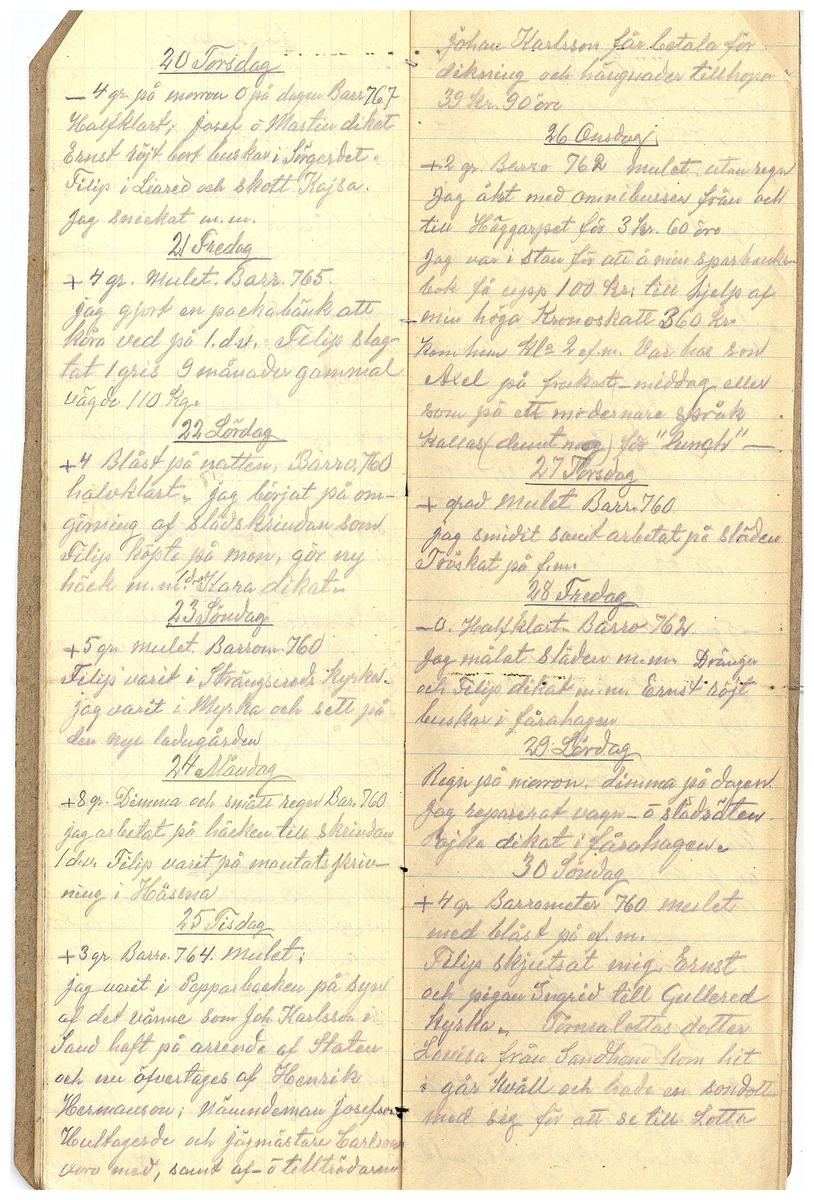 20 Torsdag
– 4 gr. på morron 0 på dagen Barr 767
Halfklart; Josef o Martin dikat
Ernst röjt bort buskar i Sörgerdet.
Filip i Liared och skott Kajsa.
Jag snickat m.m.
21 Fredag
+ 4 gr. Mulet. Barr. 765.
jag gjort en packabänk att
köra ved på 1. d.v. Filip slag
tat 1 gris 9 månader gammal
vägde 110 Kg.
22 Lördag
+4 Blåst på natten, Barro. 760
halvklart. jag börjat på om-
görning af slädskrindan som
Filip köpte på mon, gör ny
häck m.m. Kara dikat.
23 Söndag
+5 gr. mulet. Barrom 760
Filip varit i Strängsereds kyrka.
jag varit i Myrka och sett på
den nye ladugården
24 Måndag
+8 gr. Dimma och smått regn Bar. 760
jag arbetat på häcken till skrindan
1 d.v. Filip varit på mantalsskriv-
ning i Hässna
25 Tisdag
+3 gr. Barro. 764. mulet;
jag varit i Papparbacken på syn
af det vänne som Joh Karlsson i
Sand haft på arrende af Staten
och nu öfvertages af Henrik
Hermanson; Nämndeman Josefson
Hultagerde och jägmästare Carlson
voro med, samt af- o tillträdaren
Johan Karlsson får betala för
dikning och hängnader tillhopa
39 kr. 90 öre
26 Onsdag
+2 gr. Barro 762 mulet utan regn
Jag åkt med omnibussen från och
till Häggarpet för 3 kr. 60 öre
Jag var i stan för att å min sparbanks-
bok få upp 100 kr; till hjelp af
min höga Kronoskatt 360 kr.
Kom hem kl. 2 e.f.m. Var hos son
Axel på frukost-middag eller
som på ett modernare språk
kallas (dumt nog) för "lunch" —
27 Torsdag
+ grad Mulet Barr. 760
jag smidit samt arbetat på släden
Tröskat på f.m.
28 Fredag
– 0. Halfklart. Barro 762
Jag målat släden m.m. Drängen
och Filip dikat m.m. Ernst röjt
buskar i fårahagen
29 Lördag
Regn på morron. dimma på dagen.
Jag reparerat vagn- o slädsäten
Pojka dikat i fårahagen.
30 Söndag
+ 4 gr Barrometer 760 mulet
med blåst på e.f.m.
Filip skjutsat mig, Ernst
och pigan Ingrid till Gullered
kyrka. Tomsalottas dotter
Lovisa från Sandhem kom hit
i går kväll och hade en sondotter
med seg för att se till Lotta